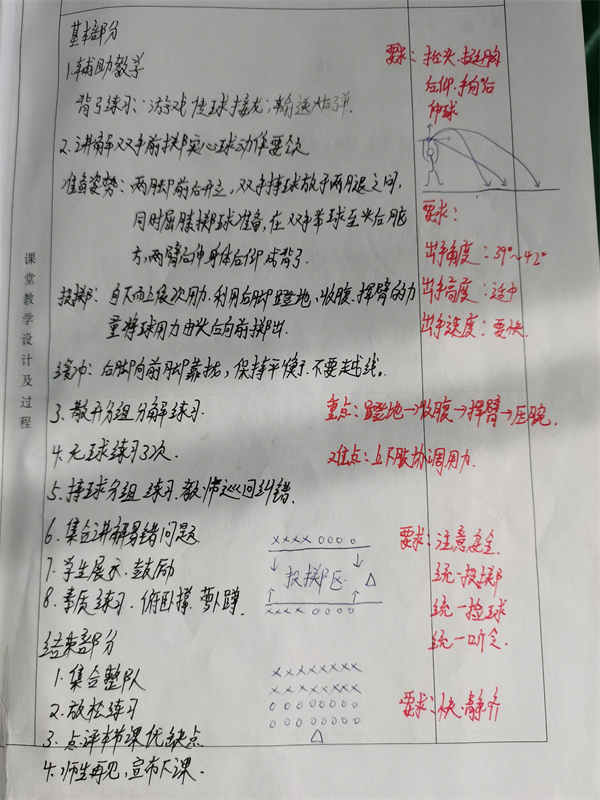 课堂教学设计及过程
基本部分
1.辅助教学
背弓练习：游戏 传球接龙，输送大炮弹.
2.讲解双手前掷实心球动作要领
准备姿势：两脚前后开立，双手持球放于两腿之间，
同时屈膝掷球准备，在双手举球至头后脑
方，两臂后伸身体后仰成背弓.
投掷：自下而上依次用力.利用后脚蹬地、收腹、挥臂的力
量将球用力由头后向前掷出.
缓冲：后脚向前脚靠拢，保持平衡，不要走出线。
3.散开分组分解练习.
4.无球练习3次.
5.持球分组练习.教师巡回纠错.
6.集合讲解易错问题
7.学生展示.鼓励
8.素质练习.俯卧撑.萝卜蹲.
结束部分
1.集合整队
2.放松练习
3.点评本节课优缺点
4.师生再见，宣布下课.
要求：抬头.挺胸
后仰.手向后
伸球
要求：
出手角度：39°~42°
出手高度：适中
出手速度：要快.
重点：蹬地→收腹→挥臂→压腕.
难点：上下肢协调用力.
××××○○○○
投掷区 △
××××○○○○
要求：注意安全.
统一投掷
统一捡球
统一听令.
××××××××
××××××××
○○○○○○○○
○○○○○○○○
△
要求：快.静.齐